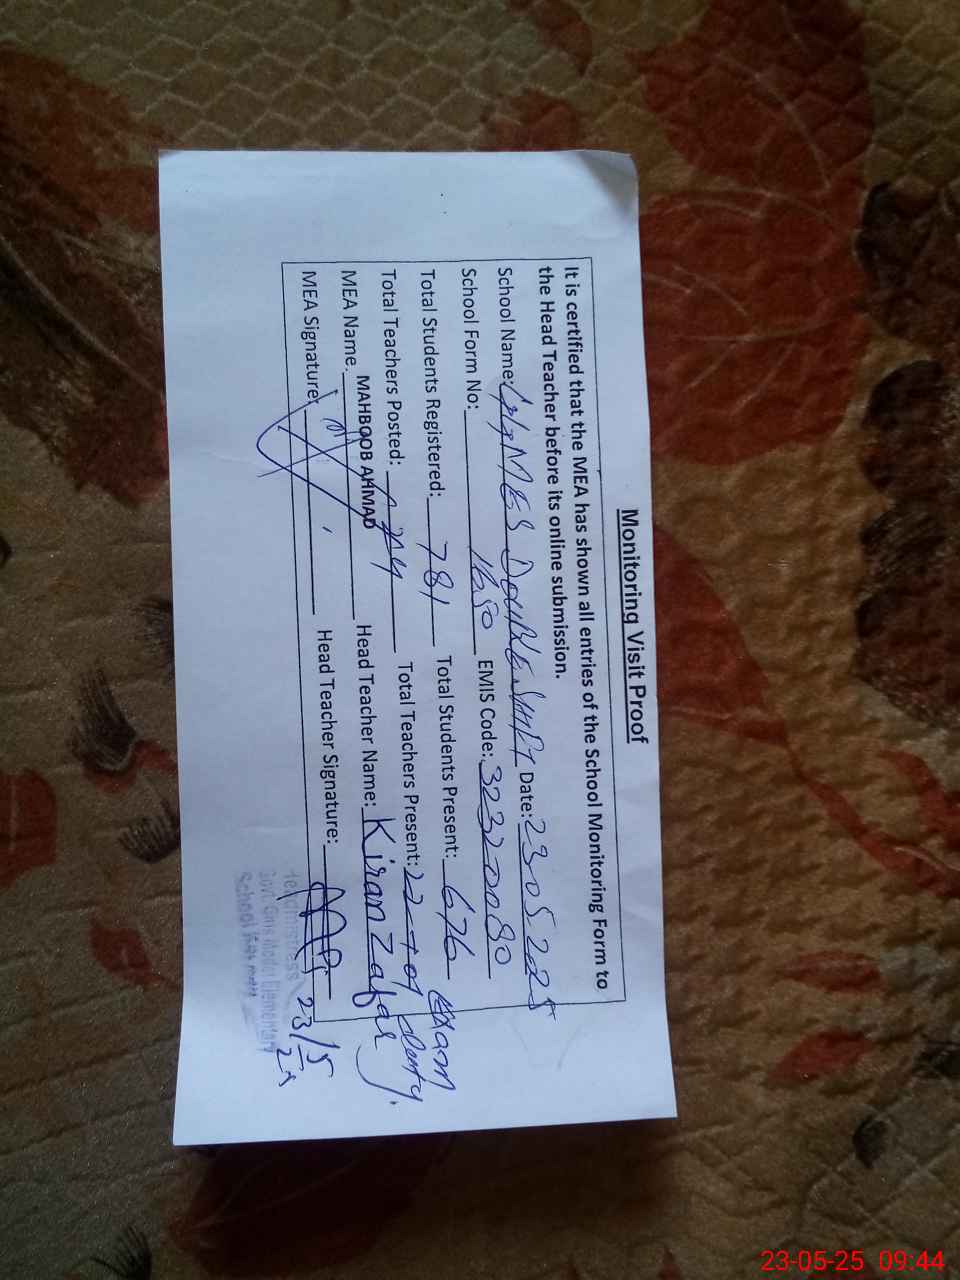 Monitoring Visit Proof
It is certified that the MEA has shown all entries of the School Monitoring Form to
the Head Teacher before its online submission.
School Name: DOUBLE SHIFT Date: 23052025
School Form No: 1650 EMIS Code: 32320080
Total Students Registered: 781 Total Students Present: 676 exam
Total Teachers Posted: 24 Total Teachers Present: 22 + 01 duty.
MEA Name. MAHBOOB AHMAD Head Teacher Name: Kiran Zafar
MEA Signature: Head Teacher Signature: 23/5
25
Headmistress
Govt. Girls Model Elementary
School
23-05-25 09:44